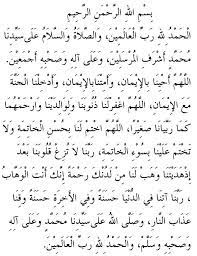 بِسْمِ اللهِ الرَّحْمٰنِ الرَّحِيْمِ
الْحَمْدُ لِلهِ رَبِّ الْعَالَمِيْنَ، وَالصَّلَاةُ وَالسَّلَامُ عَلَى سَيِّدِنَا
مُحَمَّدٍ أَشْرَفِ الْمُرْسَلِيْنَ، وَعَلَى آلِهِ وَصَحْبِهِ أَجْمَعِيْنَ.
اللَّهُمَّ أَحْيِنَا بِالْإِيْمَانِ، وَأَمِتْنَا بِالْإِيْمَانِ، وَأَدْخِلْنَا الْجَنَّةَ
مَعَ الْإِيْمَانِ، اللَّهُمَّ اغْفِرْلَنَا ذُنُوْبَنَا وَلِوَالِدَيْنَا وَارْحَمْهُمَا
كَمَا رَبَّيَانَا صَغِيْرًا، اللَّهُمَّ اخْتِمْ لَنَا بِحُسْنِ الْخَاتِمَةِ وَلَا
تَخْتِمْ عَلَيْنَا بِسُوْءِ الْخَاتِمَةِ، رَبَّنَا لَا تُزِغْ قُلُوْبَنَا بَعْدَ
إِذْهَدَيْتَنَا وَهَبْ لَنَا مِنْ لَدُنْكَ رَحْمَةً إِنَّكَ أَنْتَ الْوَهَّابُ
، رَبَّنَا آتِنَا فِي الدُّنْيَا حَسَنَةً وَفِي الْآخِرَةِ حَسَنَةً وَقِنَا
عَذَابَ النَّارِ، وَصَلَّى اللهُ عَلَى سَيِّدِنَا مُحَمَّدٍ وَعَلَى آلِهِ
وَصَحْبِهِ وَسَلَّمَ، وَالْحَمْدُ لِلهِ رَبِّ الْعَالَمِيْنَ.